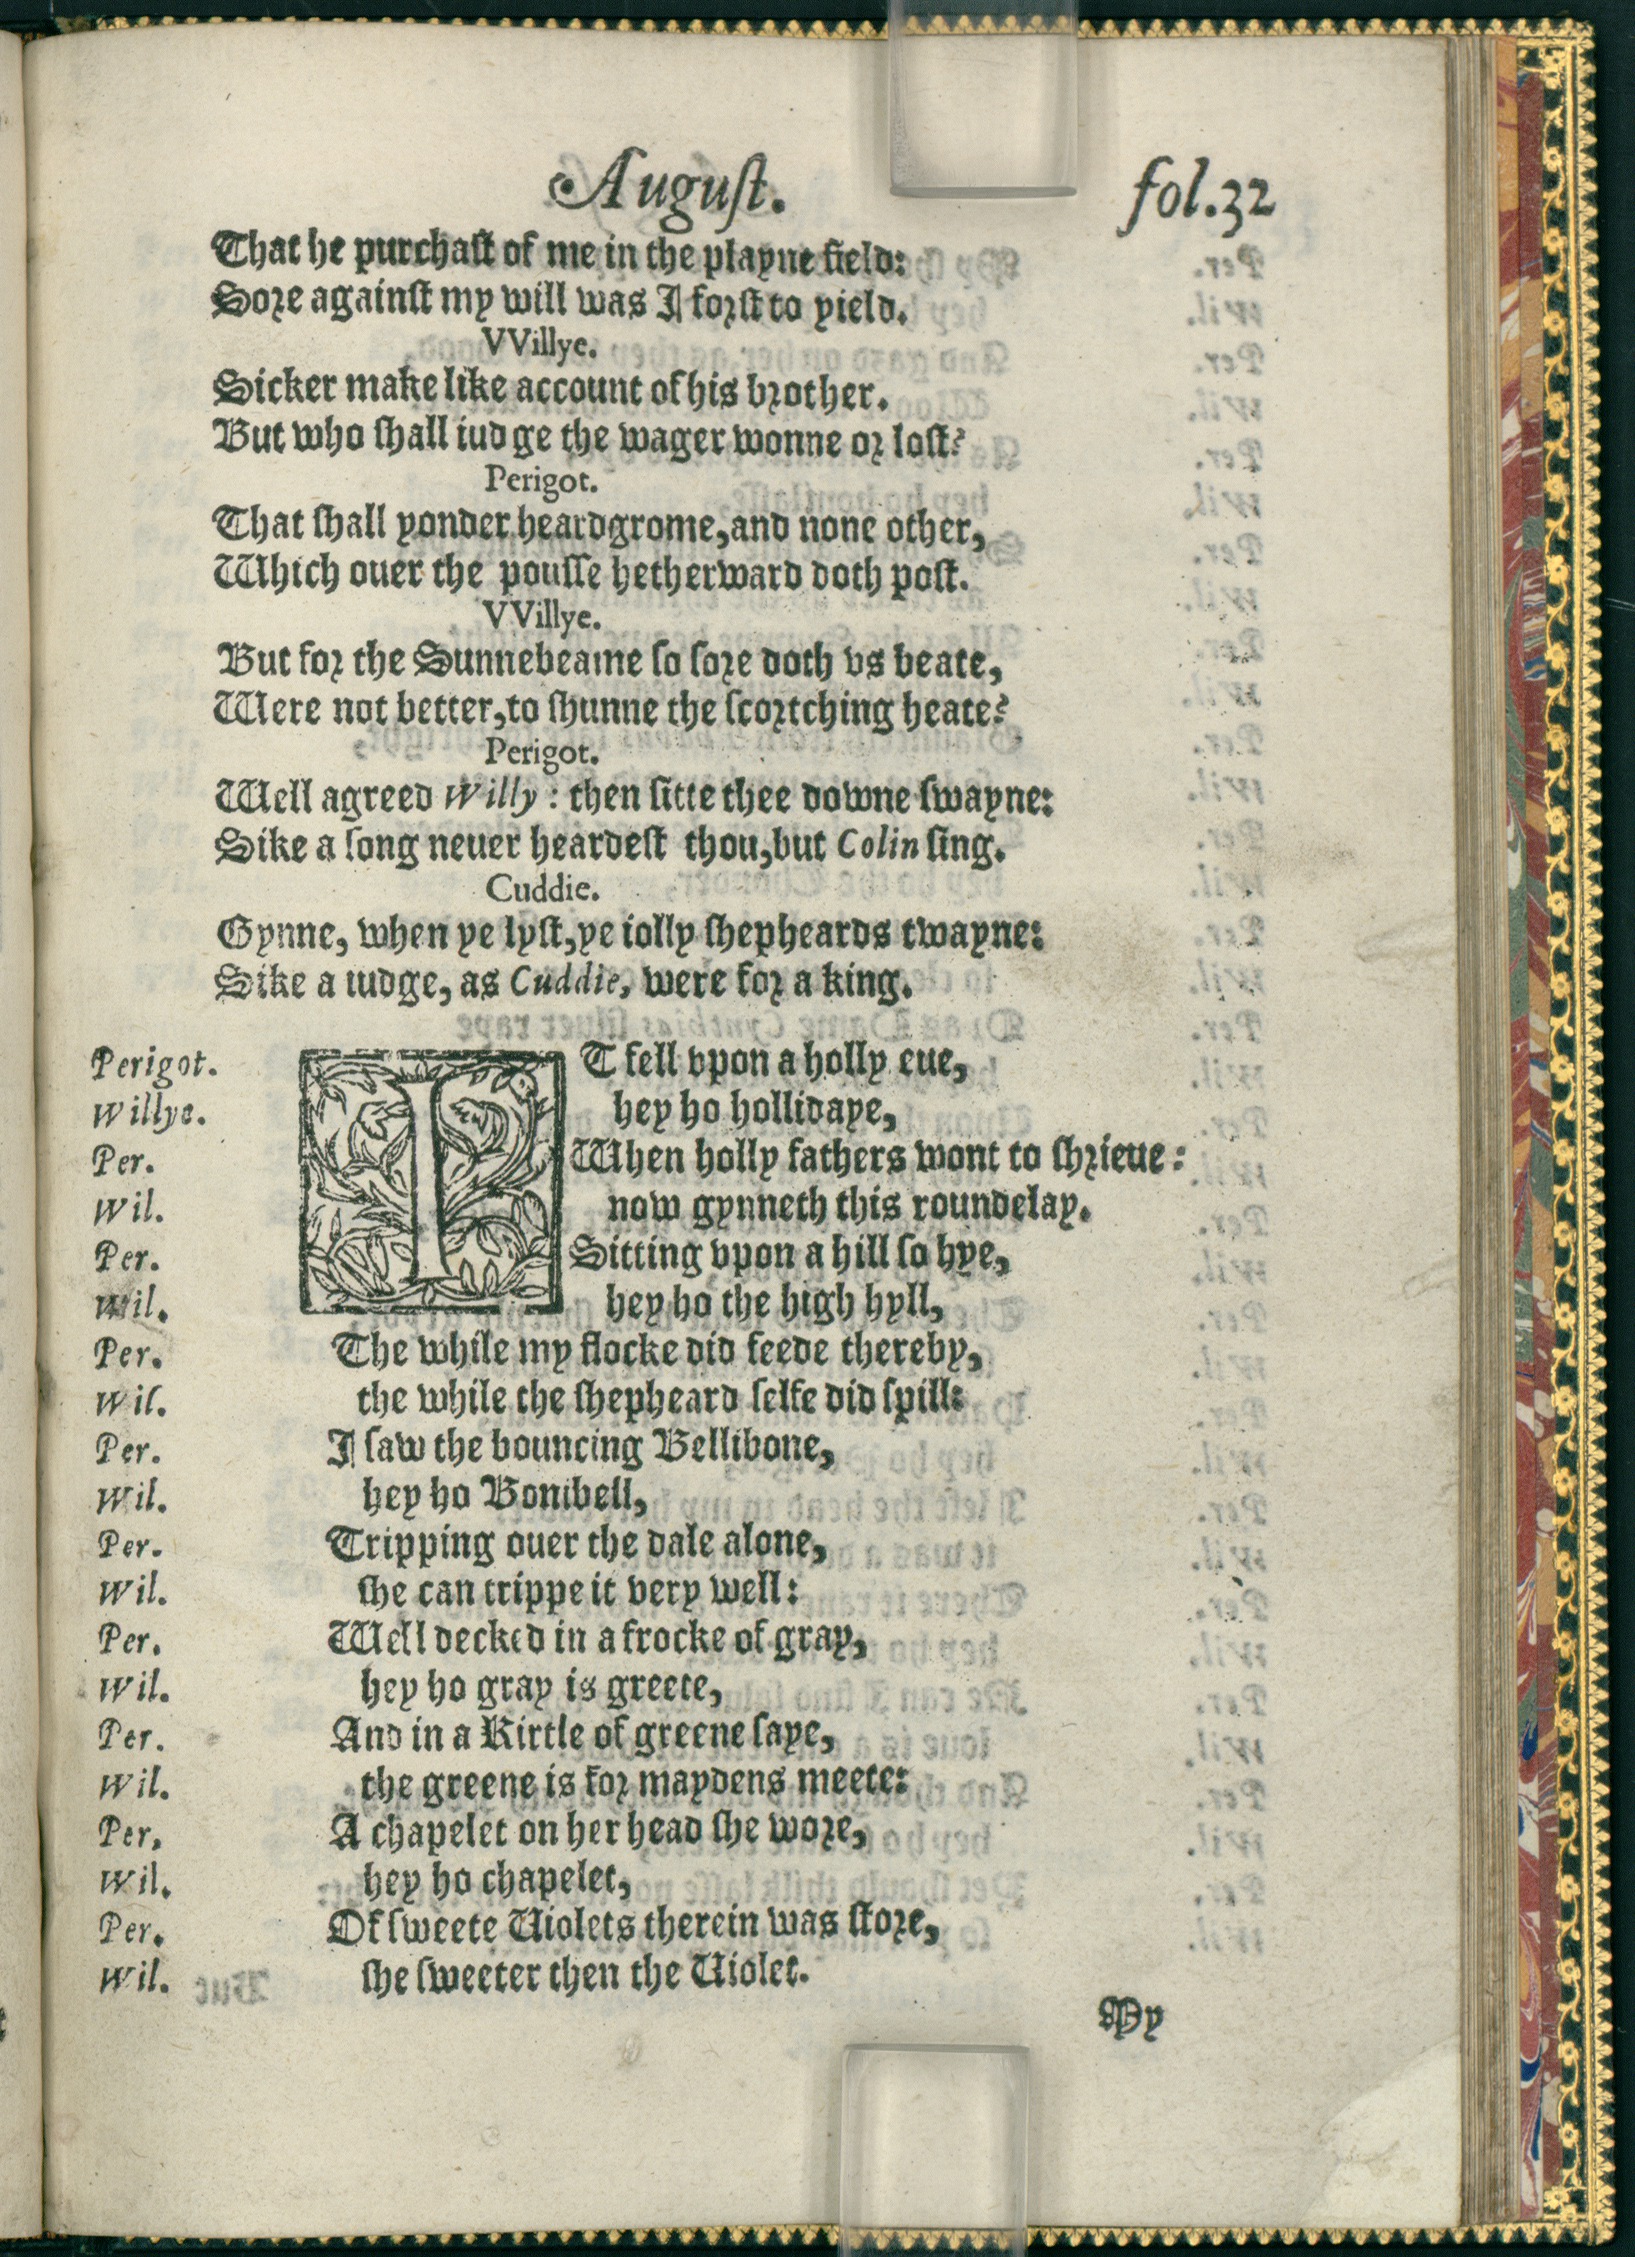 Auguſt. fol.32
That he purchaſt of me in the playne field:
Sore againſt my will was I forſt to yield.
VVillye.
Sicker make like account of his brother.
But who ſhall iudge the wager wonne or loſt?
Perigot.
That ſhall yonder heardgrome, and none other,
Which ouer the pouſſe hetherward doth poſt.
VVillye.
But for the Sunnebeame ſo ſore doth vs beate,
Were not better, to ſhunne the ſcortching heate?
Perigot.
Well agreed Willy: then ſitte thee downe ſwayne:
Sike a ſong neuer heardeſt thou, but Colin ſing.
Cuddie.
Gynne, when ye lyſt, ye iolly ſhepheards twayne:
Sike a iudge, as Cuddie, were for a king.
Perigot. IT fell vpon a holly eue,
Willye. hey ho hollidaye,
Per. When holly fathers wont to ſhrieue:
Wil. now gynneth this roundelay.
Per. Sitting vpon a hill ſo hye,
Wil. hey ho the high hyll,
Per. The while my flocke did feede thereby,
Wil. the while the ſhepheard ſelfe did ſpill:
Per. I ſaw the bouncing Bellibone,
Wil. hey ho Bonibell,
Per. Tripping ouer the dale alone,
Wil. ſhe can trippe it very well:
Per. Well decked in a frocke of gray,
Wil. hey ho gray is greete,
Per. And in a Kirtle of greene ſaye,
Wil. the greene is for maydens meete:
Per, A chapelet on her head ſhe wore,
Wil. hey ho chapelet,
Per. Of ſweete Uiolets therein was ſtore,
Wil. ſhe ſweeter then the Uiolet.
My